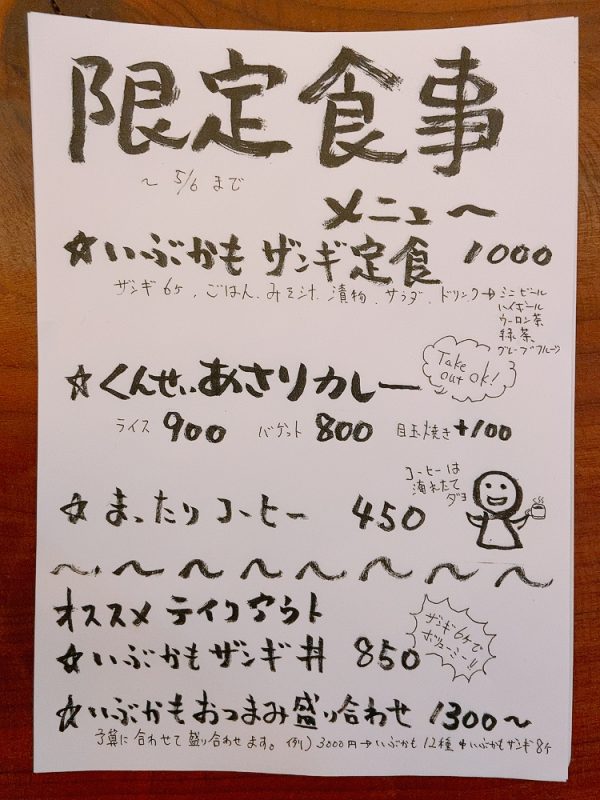 限定食事
～ 5/6 まで
メニュー
☆いぶかも ザンギ定食 1000
ザンギ6ヶ、ごはん、みそ汁、漬物、サラダ、ドリンク→ミニビール
ハイボール
ウーロン茶
緑茶、
グレープフルーツ
Take out OK!
☆くんせいあさりカレー
ライス 900 バゲット 800 目玉焼き +100
コーヒーは
淹れたて
ダヨ
☆まったりコーヒー 450
オススメ テイクアウト
ザンギ6ヶで
ボリューミー!!
☆いぶかもザンギ丼 850
☆いぶかもおつまみ盛り合わせ 1300～
予算に合わせて盛り合わせます。例)3000円→いぶかも12種+いぶかもザンギ8ヶ